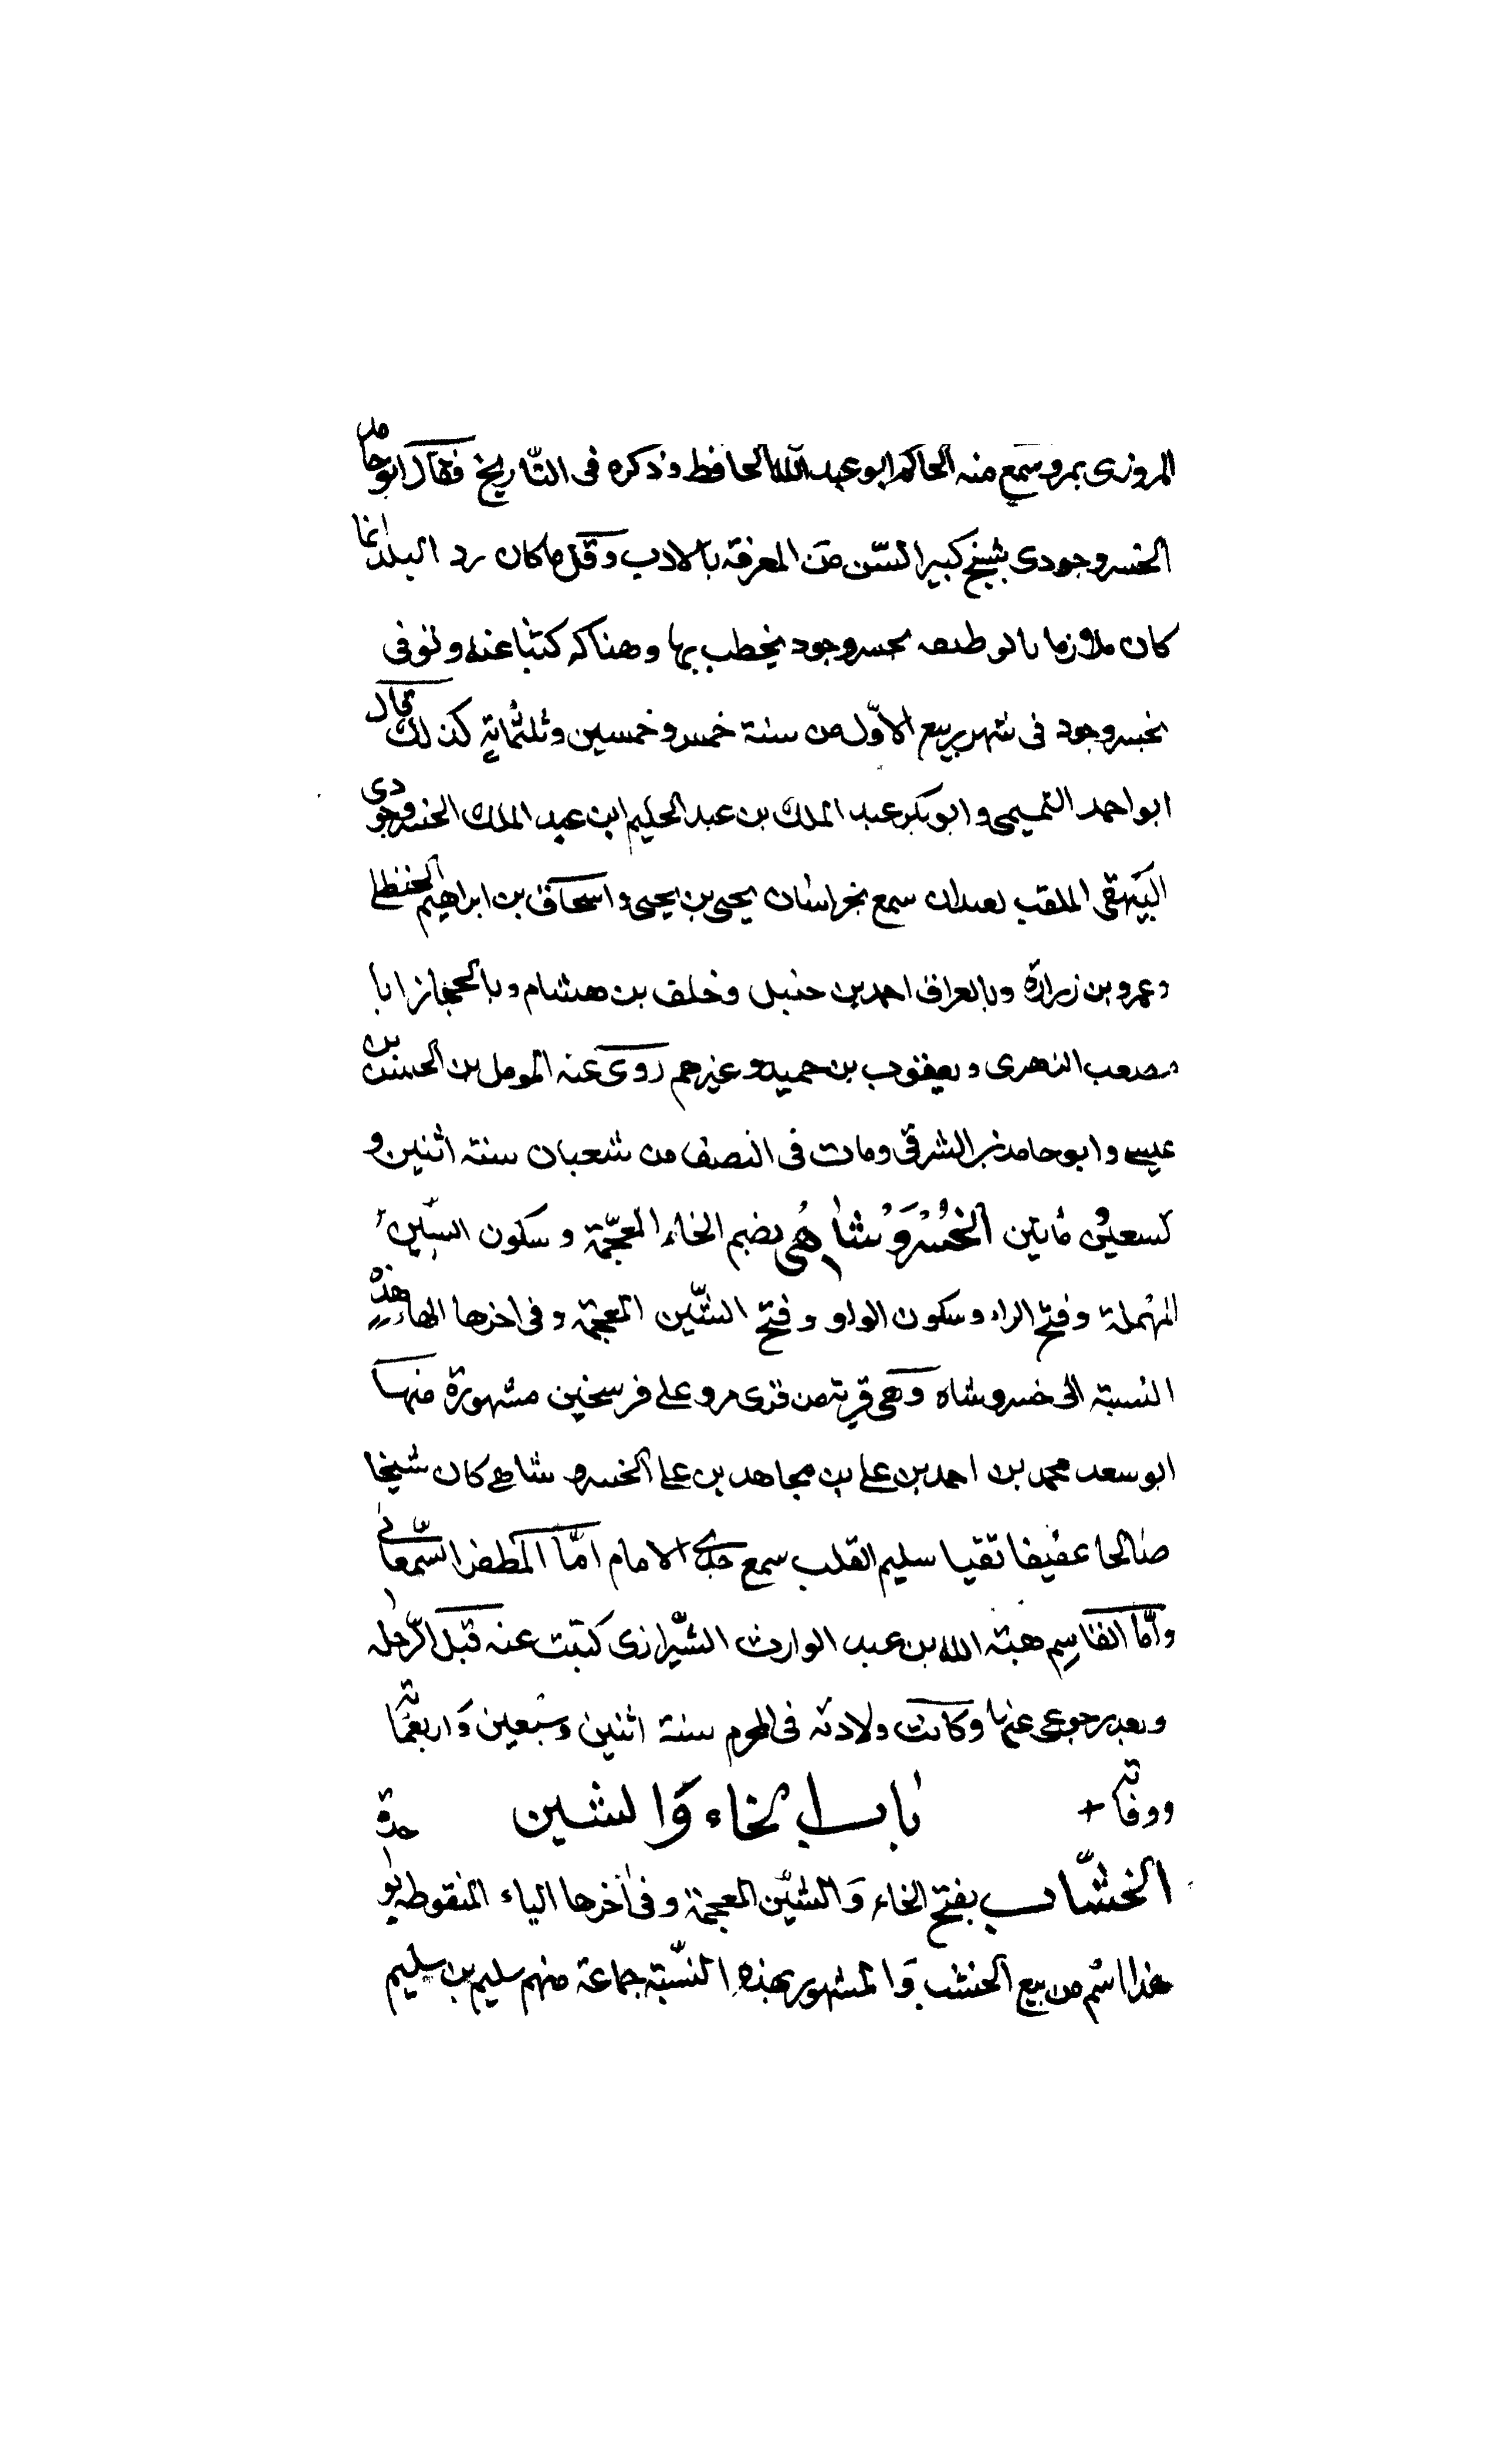 المروزى بمرو سمع منه الحاكم ابو عبد الله الحافظ وذكره فى التّاريخ فقال ابو حامد
الخسروجودى شيخ كبير السّن من المعرفة بالادب وقل ما كان يرد البلد انما
كان ملازما بخسروجود يخطب بها وهناك كتبنا عنه وتوفى
بخسروجود فى شهر ربيع الاوّل من سنة خمس وخمسين وثلثمائة كذلك قال
ابو احمد التميمى وابو بكر عبد الملك بن عبد الحليم ابن عبد الملك الخسروجودى
البيهقى الملقب بعبدان سمع بخراسان يحيى بن يحيى واسحاق بن ابراهيم الحنظلى
وعمرو بن زرارة وبالعراق احمد بن حنبل وخلف بن هشام وبالحجاز ابا
مصعب الزهرى ويعقوب بن حميد وغيرهم روى عنه المومل بن الحسن بن
عيسى وابو حامد بن الشرقى ومات فى النصف من شعبان سنة اثنين و
تسعين ومايتين الخُسْرَوْشَاهُى بضم الخاء المعجّمة وسكون السّين
المهملة وفتح الراء وسكون الواو وفتح الشّين المعجمة وفى اخرها الهاء هذه
النسبة الى خسروشاه وهى قرية من قرى مرو على فرسخين مشهورة منها
ابو سعد محمد بن احمد بن على بن مجاهد بن على الخسرو شاهى كان شيخا
صالحا عفيفا تقيا سليم القلب سمع جدى الامام امّا المظفر السّمعانى
وامّا القاسم هبة الله بن عبد الوارث الشّيرازى كتبت عنه قبل الرّحله
وبعد رجوعى عنها وكانت ولادته فى المحرم سنة اثنين وسبعين وَاربعمائة
ووفاته + باب الخاء وَالشين
الخشّاب بفتح الخاء وَالشّين المعجمة وفى اخرها الياء المنقوطه بواحدة
هذا اسم من بيع الخشب وَالمشهور بهذه النّسبة جماعة منهم سليم بن سليم